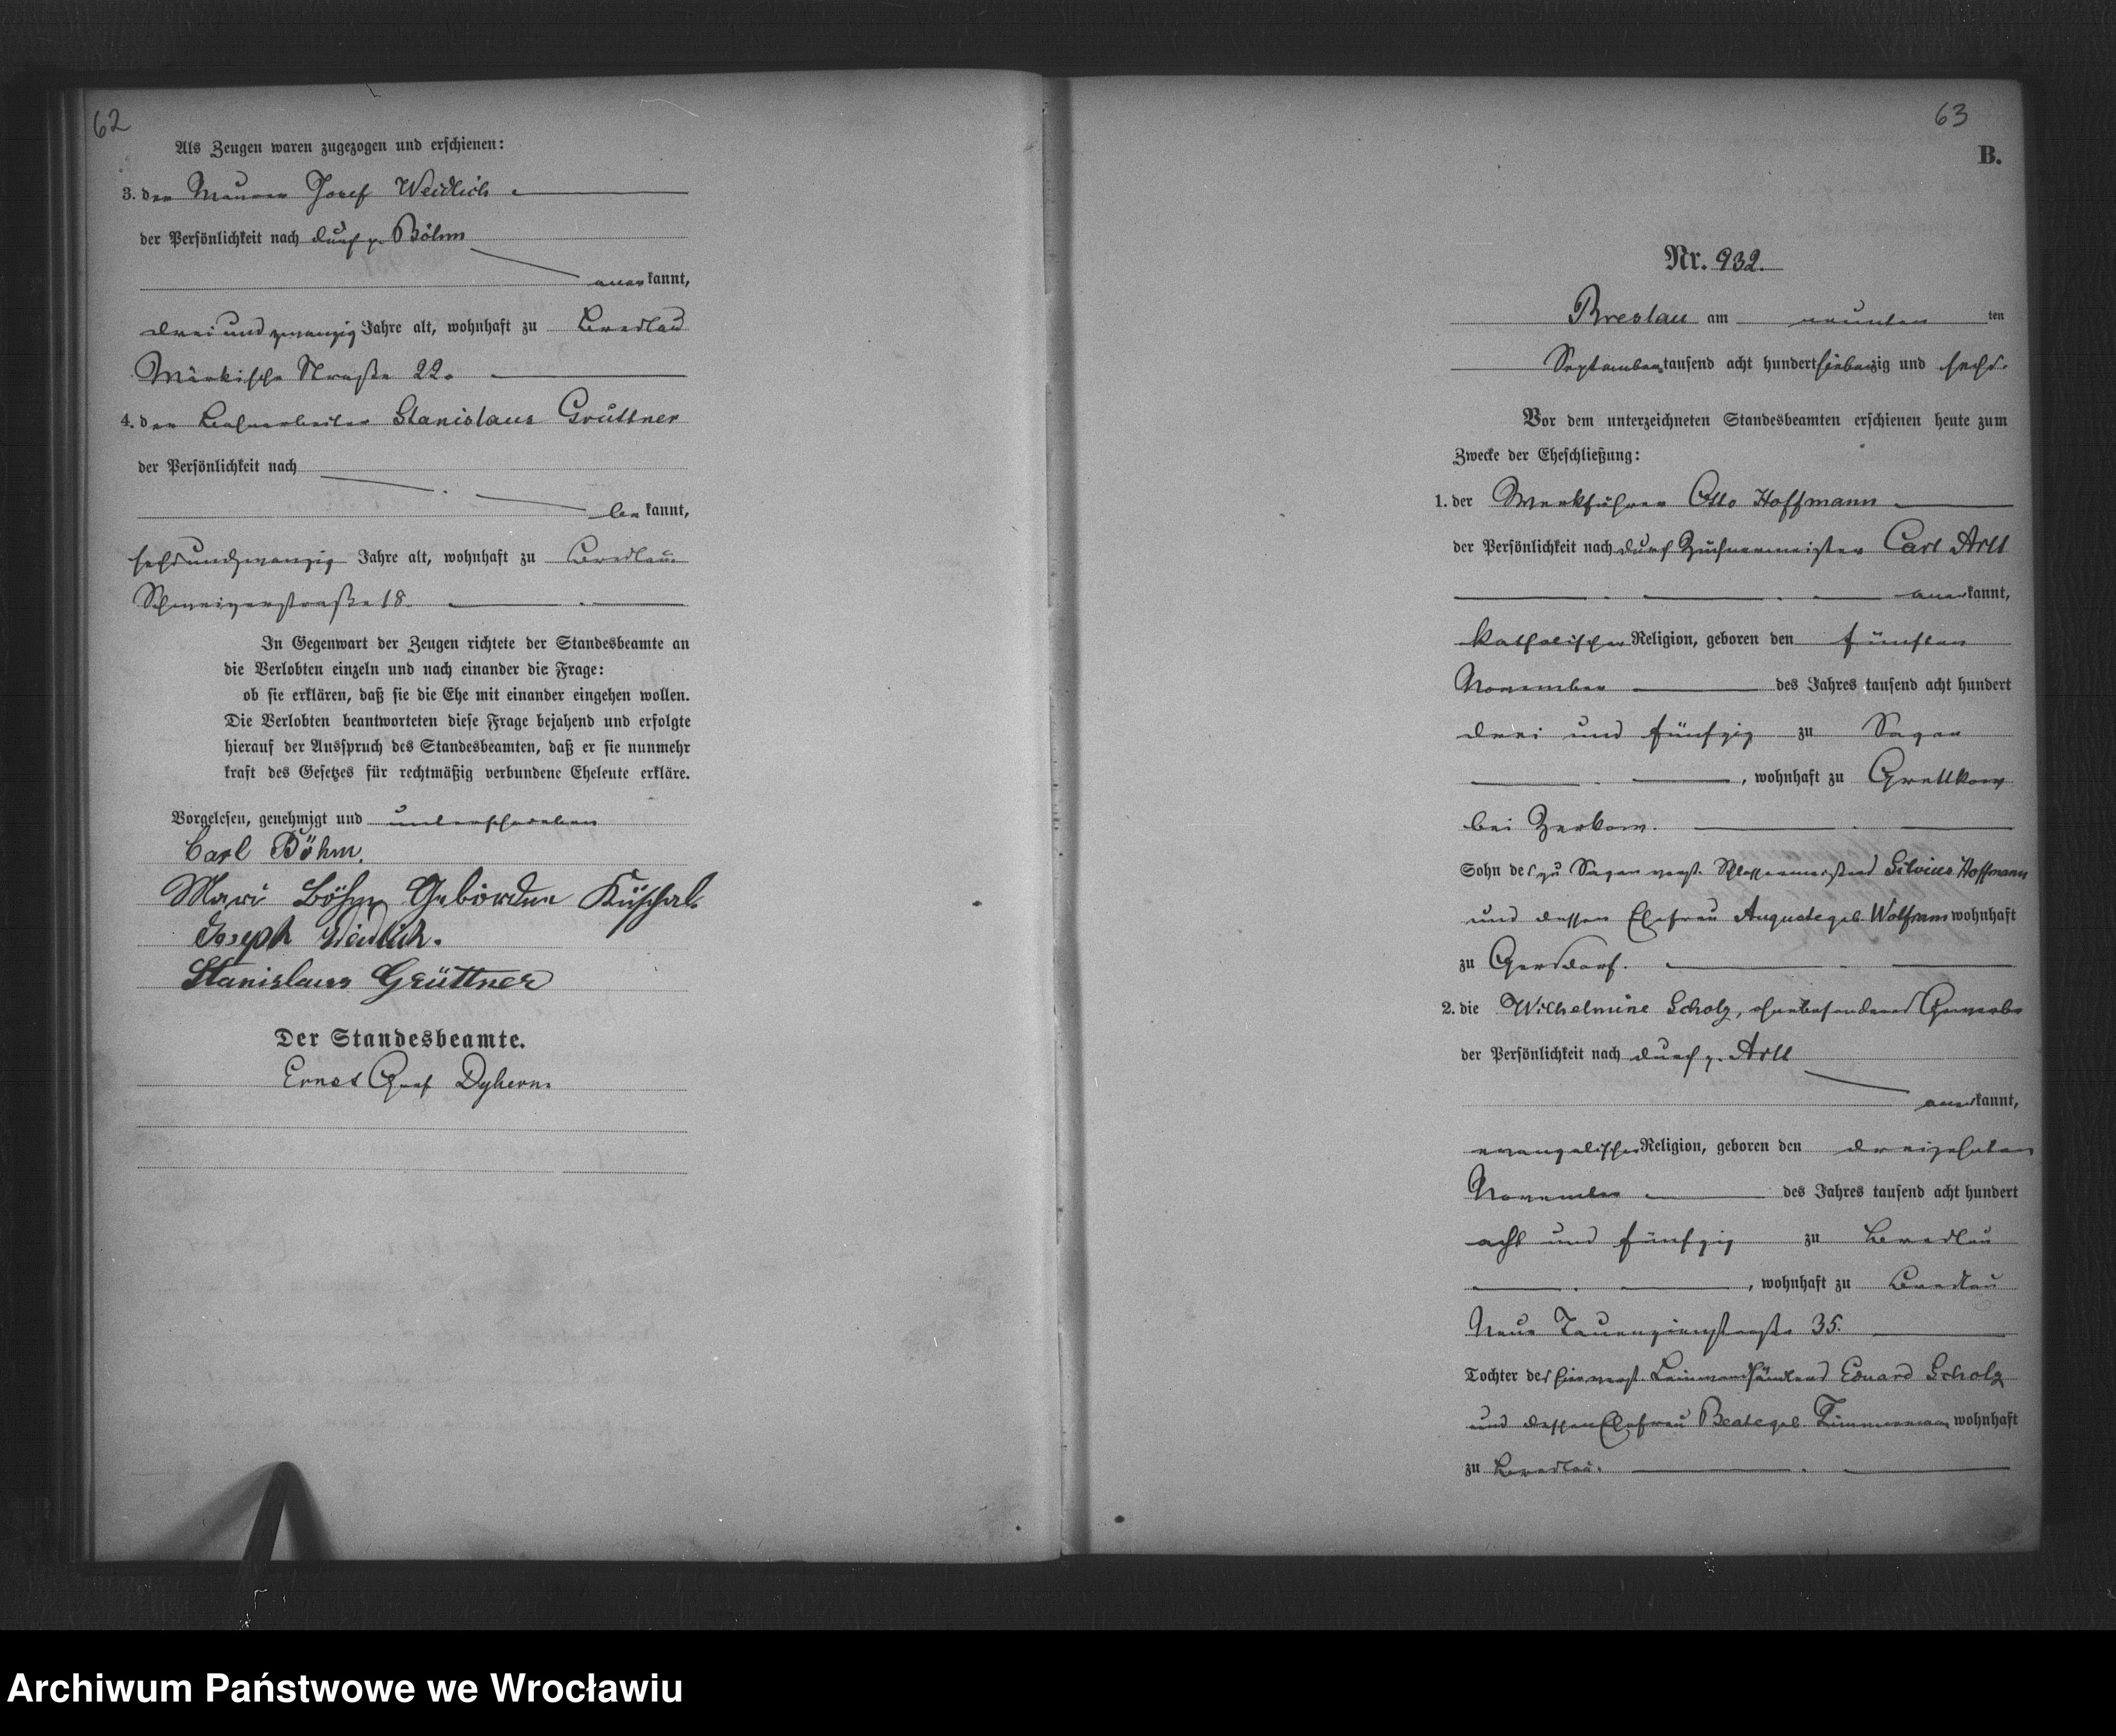 62
Als Zeugen waren zugezogen und erschienen:
3. der Maurer Josef Weidlich
der Persönlichkeit nach durch p. Böhm
anerkannt,
drei und zwanzig Jahre alt, wohnhaft zu Breslau
Märkische Straße 22.
4. der Bahnarbeiter Stanislaus Grüttner
der Persönlichkeit nach
bekannt,
sechsundzwanzig Jahre alt, wohnhaft zu Breslau
Schweizerstraße 18.
In Gegenwart der Zeugen richtete der Standesbeamte an
die Verlobten einzeln und nach einander die Frage:
ob sie erklären, daß sie die Ehe mit einander eingehen wollen.
Die Verlobten beantworteten diese Frage bejahend und erfolgte
hierauf der Ausspruch des Standesbeamten, daß er sie nunmehr
kraft des Gesetzes für rechtmäßig verbundene Eheleute erkläre.
Vorgelesen, genehmigt und unterschrieben
Carl Böhm.
Mari Böhm Gebordne Küschal
Joseph Weidlich.
Stanislaus Grüttner
Der Standesbeamte.
Ernst Graf Dyhern.
63
B.
Nr. 932.
Breslau am neunten ten
September tausend acht hundert siebenzig und sechs.
Vor dem unterzeichneten Standesbeamten erschienen heute zum
Zwecke der Eheschließung:
1. der Werkführer Otto Hoffmann
der Persönlichkeit nach durch Züchnermeister Carl Arlt
anerkannt,
katholischer Religion, geboren den fünften
November des Jahres tausend acht hundert
drei und fünfzig zu Sagan
, wohnhaft zu Grettkow
bei Zerkow.
Sohn des zu Sagan verst. Schlossermeisters Silvius Hoffmann
und dessen Ehefrau Auguste geb. Wolfram wohnhaft
zu Gersdorf.
2. die Wilhelmine Scholz, ohne besonderes Gewerbe
der Persönlichkeit nach durch p. Arlt
anerkannt,
evangelischer Religion, geboren den dreizehnten
November des Jahres tausend acht hundert
acht und fünfzig zu Breslau
, wohnhaft zu Breslau
Neue Tauenzienstraße 35.
Tochter des hier verst. Leinwandhändlers Eduard Scholz
und dessen Ehefrau Beate geb. Zimmermann wohnhaft
zu Breslau.
Archiwum Państwowe we Wrocławiu